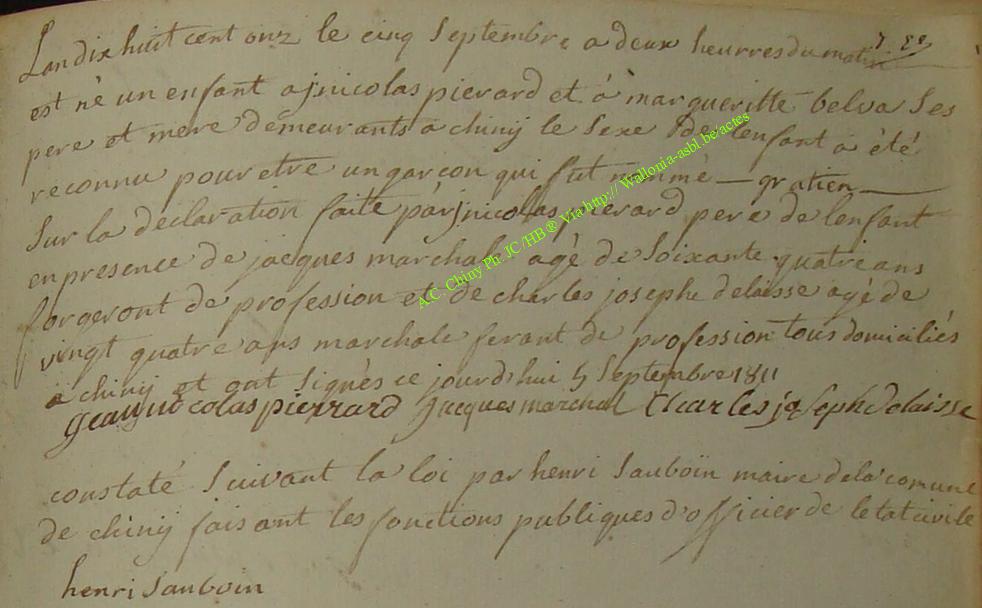 Lan dix huit cent onz le cinq Septembre a deux heurres du matin
est nè un enfant a j nicolas pierard et á margueritte belva Ses
pere et mere demeurants a chinÿ le Sexe de lenfant a été
reconnu pour etre un garcon qui fut nommè — gratien —
Sur la declaration faite pár j nicolas pierard pere de lenfant
en presence de jacques marchal agè de Soixante quatre ans
forgeront de profession et de charles josephe delaisse agè de
vingt quatre ans marchale ferant de profession tous domiciliés
a chinÿ et ont Signès ce jourd'hui 5 Septembre 1811
jean nicolas pierrard jacques marchal Charles josephe Delaisse
constaté Suivant la loi par henri Sauboin maire de la comune
de chinÿ faisant les fonctions publiques d'officier de letat civile
henri Sauboin
A.C. Chiny Ph. JC/HB ® Via http:// Wallonia-asbl.be/actes